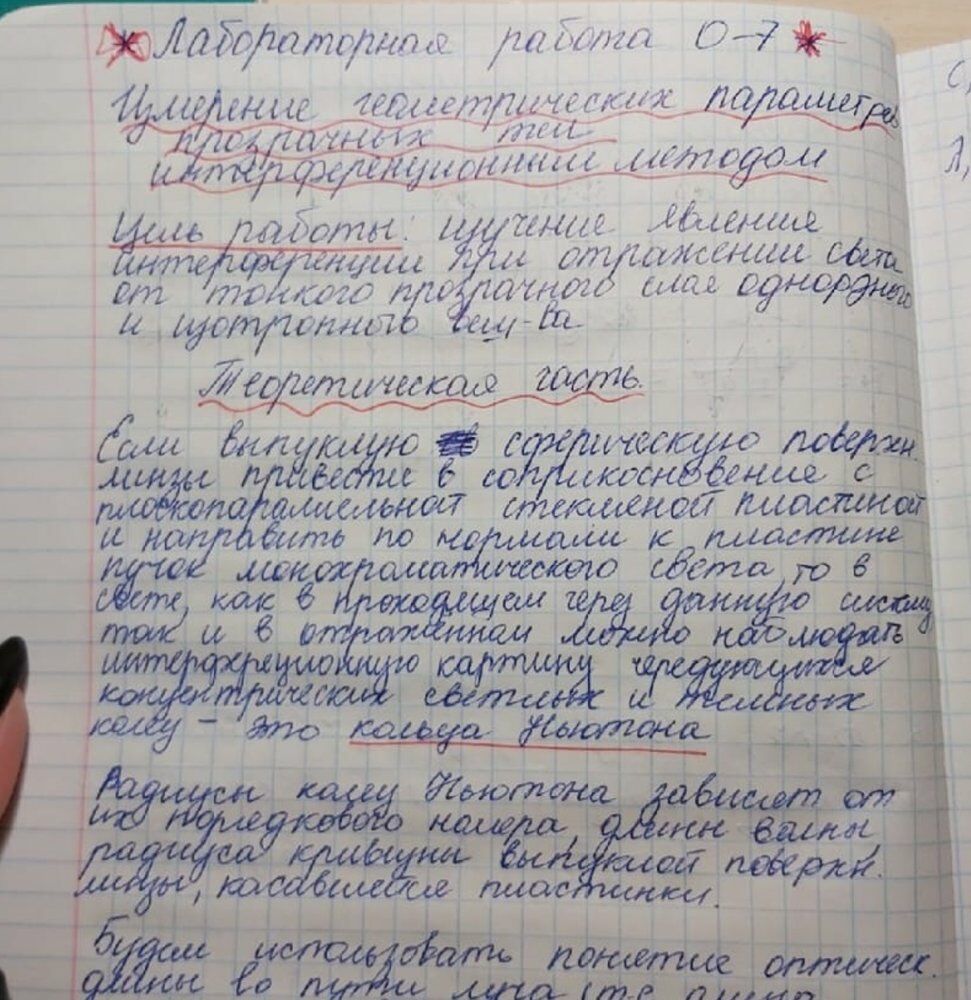 Лабораторная работа О-7
Измерение геометрических параметров
прозрачных тел
интерференционным методом
Цель работы: изучение явления
интерференции при отражении света
от тонкого прозрачного слая однородного
и изотропного вещ-ва
Теоретическая часть.
Если выпуклую сферическую поверхн.
линзы привести в соприкосновение с
плоскопараллельной стеклянной пластиной
и направить по нормали к пластине
пучок монохроматического света, то в
свете, как в проходящем через данную систему,
так и в отражённом можно наблюдать
интерференционную картину чередующихся
концентрических светлых и тёмных
колец – это кольца Ньютона
Радиусы колец Ньютона зависят от
их порядкового номера, длины волны,
радиуса кривизны выпуклой поверхн.
линзы, касавшейся пластинки.
Будем использовать понятие оптическ.
длины во пути луча (т.е. длина
С,
Л,